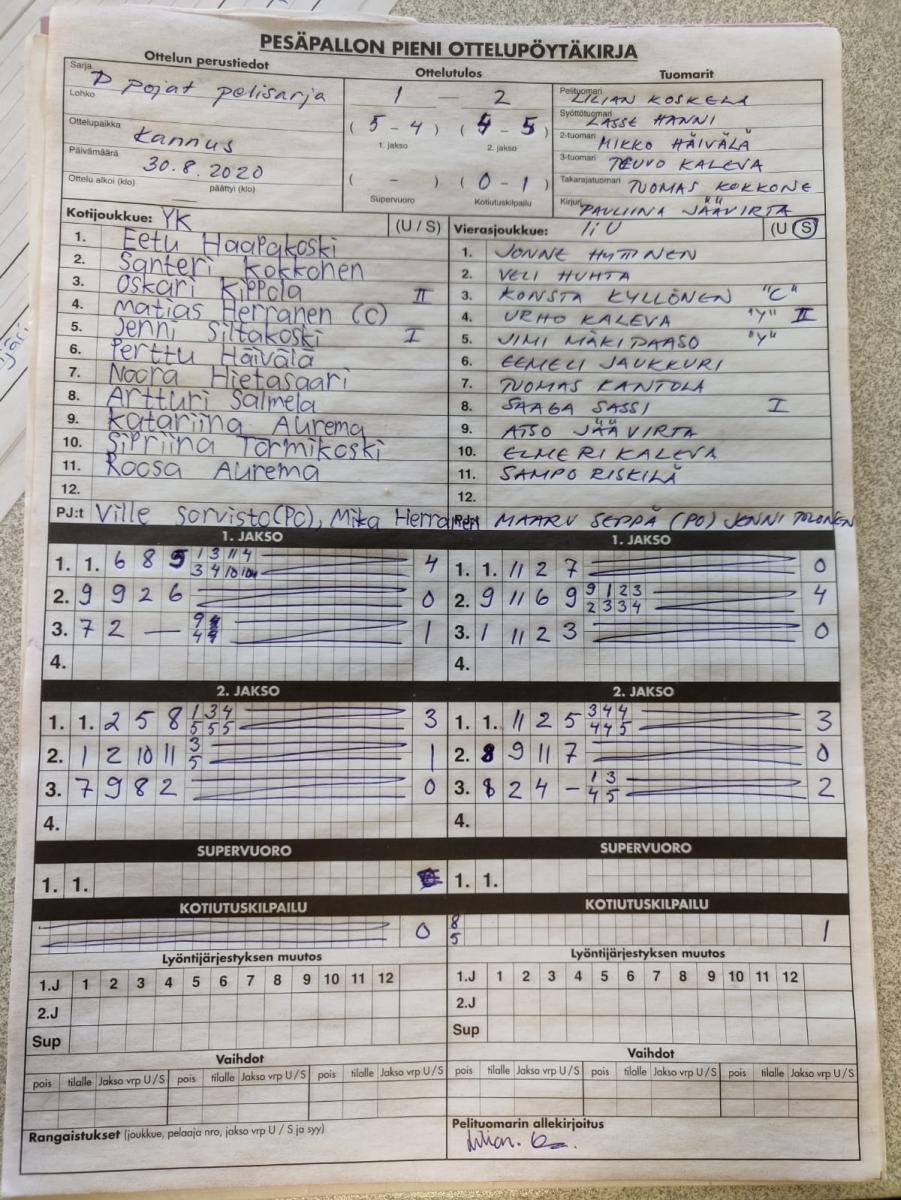 PESÄPALLON PIENI OTTELUPÖYTÄKIRJA
Ottelun perustiedot Ottelutulos Tuomarit
Sarja D pojat pelisarja 1 — 2 Pelituomari LILIAN KOSKELA
Lohko ( 5 - 4 ) ( 4 - 5 ) Syöttötuomari LASSE HANNI
Ottelupaikka Kannus 1. jakso 2. jakso 2-tuomari MIKKO HÄIVÄLÄ
Päivämäärä 30.8.2020 3-tuomari TEUVO KALEVA
Ottelu alkoi (klo) päättyi (klo) — ( - ) ( 0 - 1 ) Takarajatuomari TUOMAS KOKKONE
Supervuoro Kotiutuskilpailu Kirjuri PAULIINA JÄÄVIRTA
Kotijoukkue: YK (U / S) Vierasjoukkue: IiU (U S)
1. Eetu Haapakoski 1. JONNE HYTTINEN
2. Santeri Kokkonen 2. VELI HUHTA
3. Oskari Kippola II 3. KONSTA KYLLÖNEN "C"
4. Matias Herranen (C) 4. URHO KALEVA "Y" II
5. Jenni Siltakoski I 5. JIMI MÄKIPAASO "Y"
6. Perttu Häivälä 6. EEMELI JAUKKURI
7. Noora Hietasaari 7. TUOMAS KANTOLA
8. Artturi Salmela 8. SAAGA SASSI I
9. Katariina Aurema 9. ATSO JÄÄVIRTA
10. Sipriina Tormikoski 10. ELMERI KALEVA
11. Roosa Aurema 11. SAMPO RISKILÄ
12. 12.
PJ:t Ville Sorvisto(PO), Mika Herranen PJ:t MAARU SEPPÄ (PO) JENNI TOLONEN
1. JAKSO 1. JAKSO
1. 1. 6 8 5 1 3 11 4 4 1. 1. 11 2 7 0
3 4 10 10
2. 9 9 2 6 0 2. 9 11 6 9 9 1 2 3 4
2 3 3 4
3. 7 2 — 9 1 3. 1 11 2 3 0
4
4. 4.
2. JAKSO 2. JAKSO
1. 1. 2 5 8 1 3 4 3 1. 1. 11 2 5 3 4 4 3
5 5 5 4 4 5
2. 1 2 10 11 3 1 2. 8 9 11 7 0
5
3. 7 9 8 2 0 3. 8 2 4 - 1 3 2
4 5
4. 4.
SUPERVUORO SUPERVUORO
1. 1. 1. 1.
KOTIUTUSKILPAILU KOTIUTUSKILPAILU
0 8 1
5
Lyöntijärjestyksen muutos Lyöntijärjestyksen muutos
1.J 1 2 3 4 5 6 7 8 9 10 11 12 1.J 1 2 3 4 5 6 7 8 9 10 11 12
2.J 2.J
Sup Sup
Vaihdot Vaihdot
pois tilalle Jakso vrp U / S pois tilalle Jakso vrp U / S pois tilalle Jakso vrp U / S pois tilalle Jakso vrp U / S pois tilalle Jakso vrp U / S pois tilalle Jakso vrp U / S
Rangaistukset (joukkue, pelaaja nro, jakso vrp U / S ja syy) Pelituomarin allekirjoitus
Lilian. K